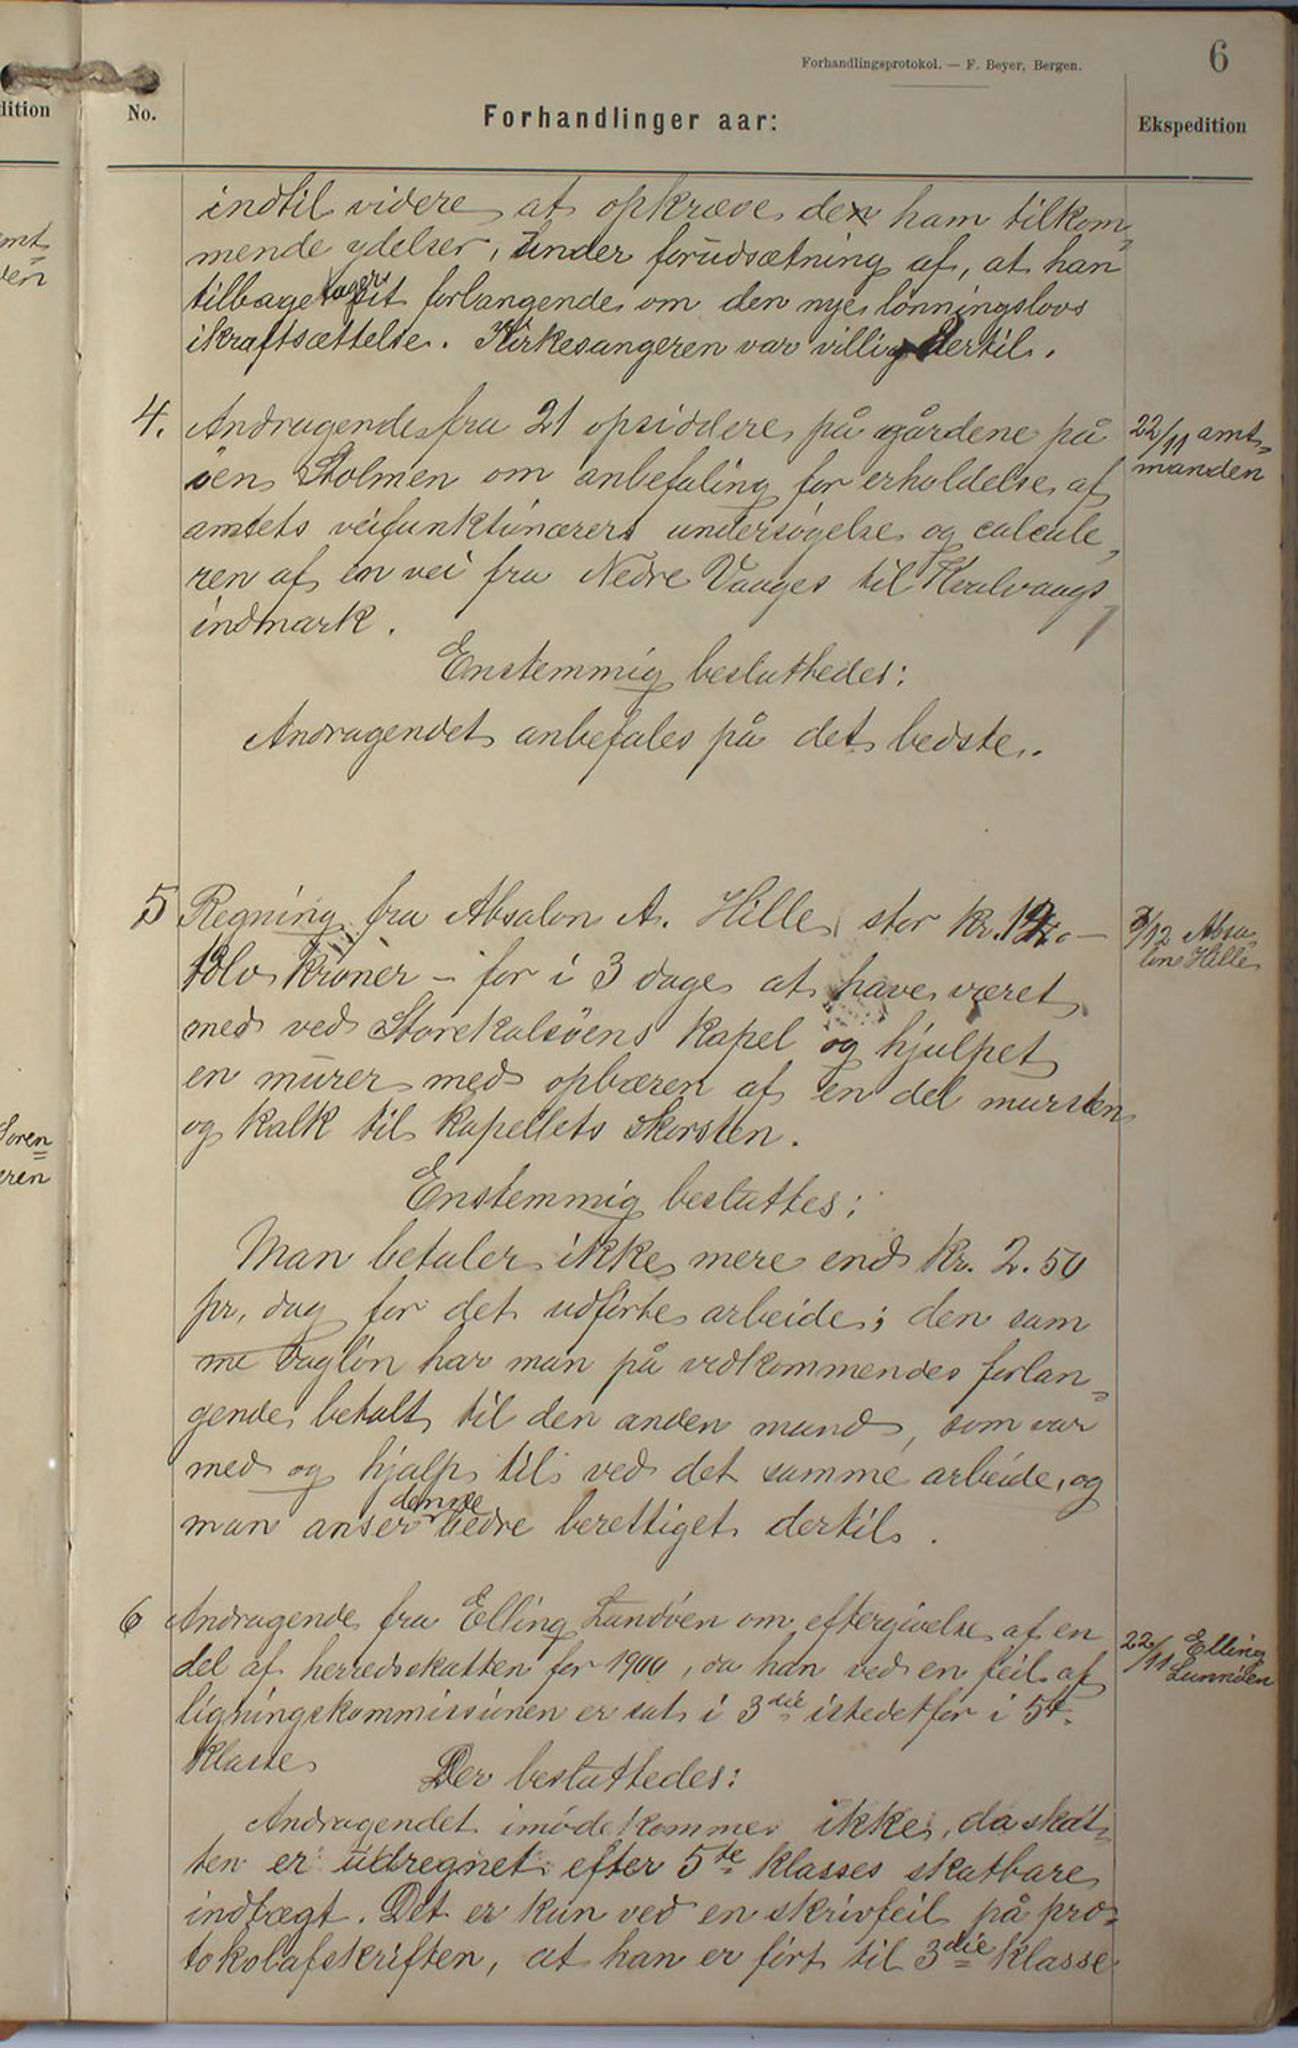 6
Forhandlingsprotokol. — F. Beyer, Bergen.
dition
No.
Forhandlinger aar:
Ekspedition
indtil videre at opkræve den ham tilkom=
mende ydelser, under forudsætning af, at han
tilbagetager sit forlangende om den nye lönningslovs
ikraftsættelse. Kirkesangeren var villig dertil.
4. Andragende fra 21 opsiddere på gårdene på
22/11 amt=
manden
öen Stolmen om anbefaling for erholdelse af
amtets veifunktionærers undersögelse og calcule,
ren af en vei fra Nedre Vaages til Kvalvaags
indmark.
Enstemmig besluttedes:
Andragendet anbefales på det bedste.
5 Regning fra Absalon A. Hille stor kr. 12.—
3/12 Absa=
lon Hille
tolv kroner – for i 3 dage at have været
med ved Storekalsöens kapel og hjulpet
en murer med opbæren af en del mursten
og kalk til kapellets skorsten.
Enstemmig besluttes:
Man betaler ikke mere end kr. 2.50
pr. dag for det udförte arbeide; den sam
me daglön har man på vedkommendes forlan=
gende betalt til den anden mand, som var
med og hjalp til ved det samme arbeide, og
man anser denne bedre berettiget dertil.
6 Andragende fra Elling Lundöen om eftergivelse af en
22/11 Elling
Lunnöen
del af herredsskatten for 1900, da han ved en feil af
ligningskommissionen er sat i 3die istedetfor i 5t.
klasse
Der besluttedes:
Andragendet imödekommes ikke, da skat=
ten er udregnet efter 5te klasses skatbare
indtægt. Det er kun ved en skrivfeil på pro=
tokolafskriften, at han er fört til 3die klasse
amt=
den
Soren=
eren